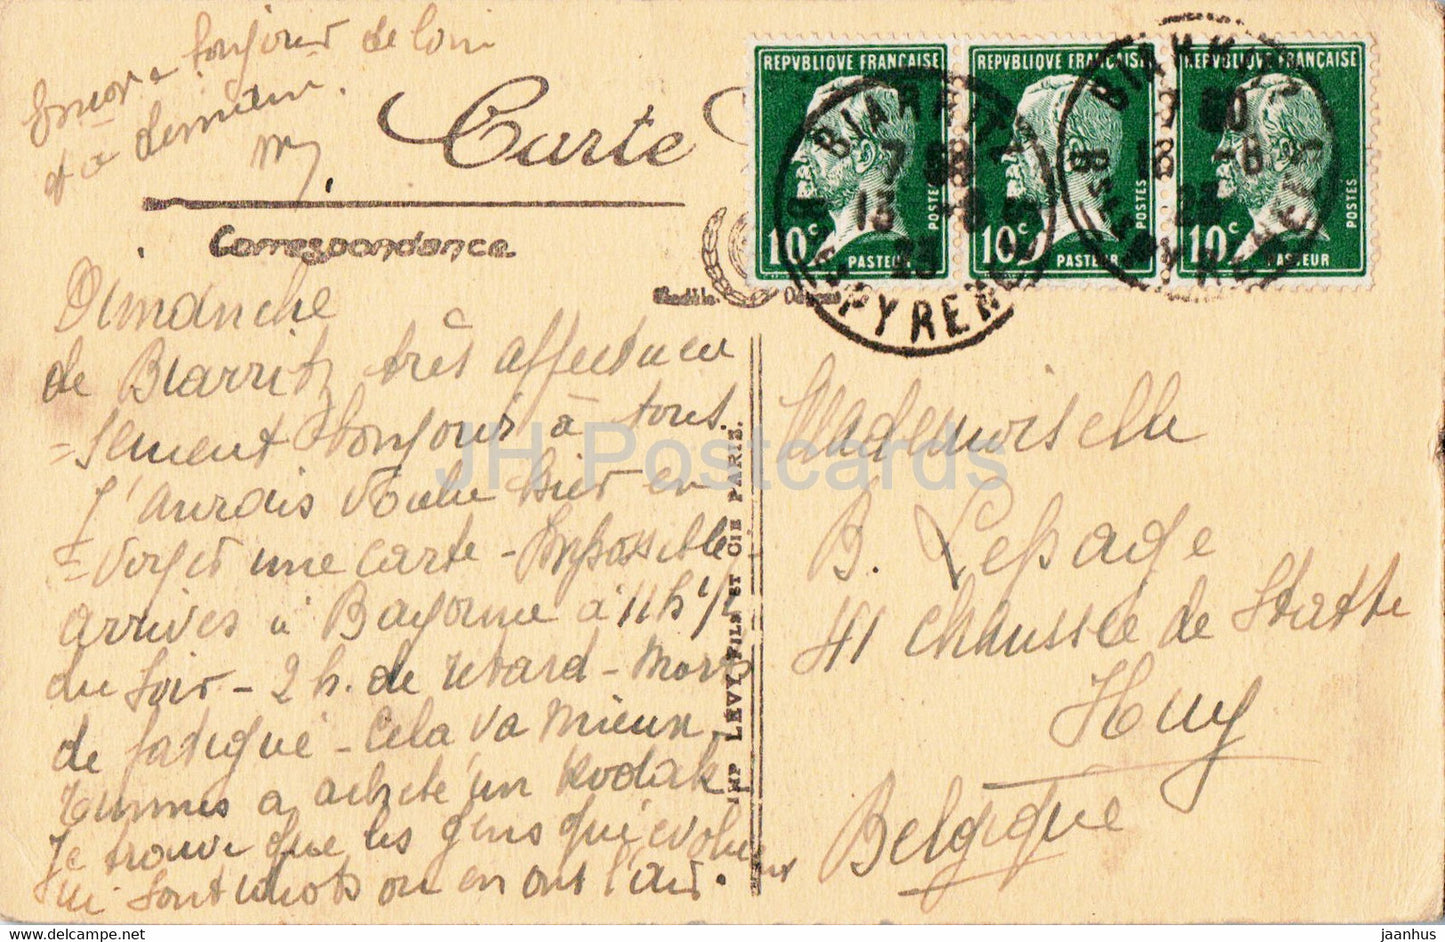 toujours de loin
demain.
Carte
Correspondance
REPVBLIQUE FRANÇAISE
10c
POSTES
PASTEUR
REPVBLIQUE FRANÇAISE
10c
POSTES
PASTEUR
REPVBLIQUE FRANÇAISE
10c
POSTES
PASTEUR
BIARRITZ
PYRENEES
BIARRITZ
PYRENEES
Dimanche
de Biarritz très affectueu
=sement bonjour à tous.
J'aurais voulu hier en
=voyer une carte - Impossible
arrivés à Bayonne à 11 h 1/2
du soir - 2 h. de retard - Morts
de fatigue - Cela va mieux
a acheté un Kodak
Je trouve que les gens qui
sont idiots ou en ont l'air.
IMP LEVY FILS ET CIE PARIS.
Mademoiselle
B. Lepage
41 chaussée de Statte
Huy
Belgique
JH Postcards
hippostcard.com/store/jh-postcards www.delcampe.net
jaanhus